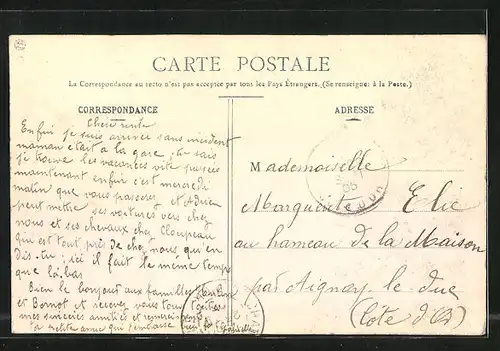 CARTE POSTALE
La Correspondance au recto n'est pas acceptée par tous les Pays Étrangers. (Se renseigner à la Poste.)
CORRESPONDANCE
ADRESSE
Enfin je suis arrivée sans incident
maman était à la gare, tu sais
je trouve les vacances vite passées
maintenant enfin c'est mercredi
matin que vous passerez et
peut mettre ses voitures vers chez
nous et ses chevaux chez
qui est tout près de chez nous qu'en
dis-tu; ici il fait le même temps
que là-bas
Bien le bonjour aux familles
et Bornot et recevez vous tous
mes sincères amitiés et
ta petite amie qui t'embrasse
Mademoiselle
Marguerite Elie
au hameau de la Maison
par Aignay le duc
(Côte d'Or)